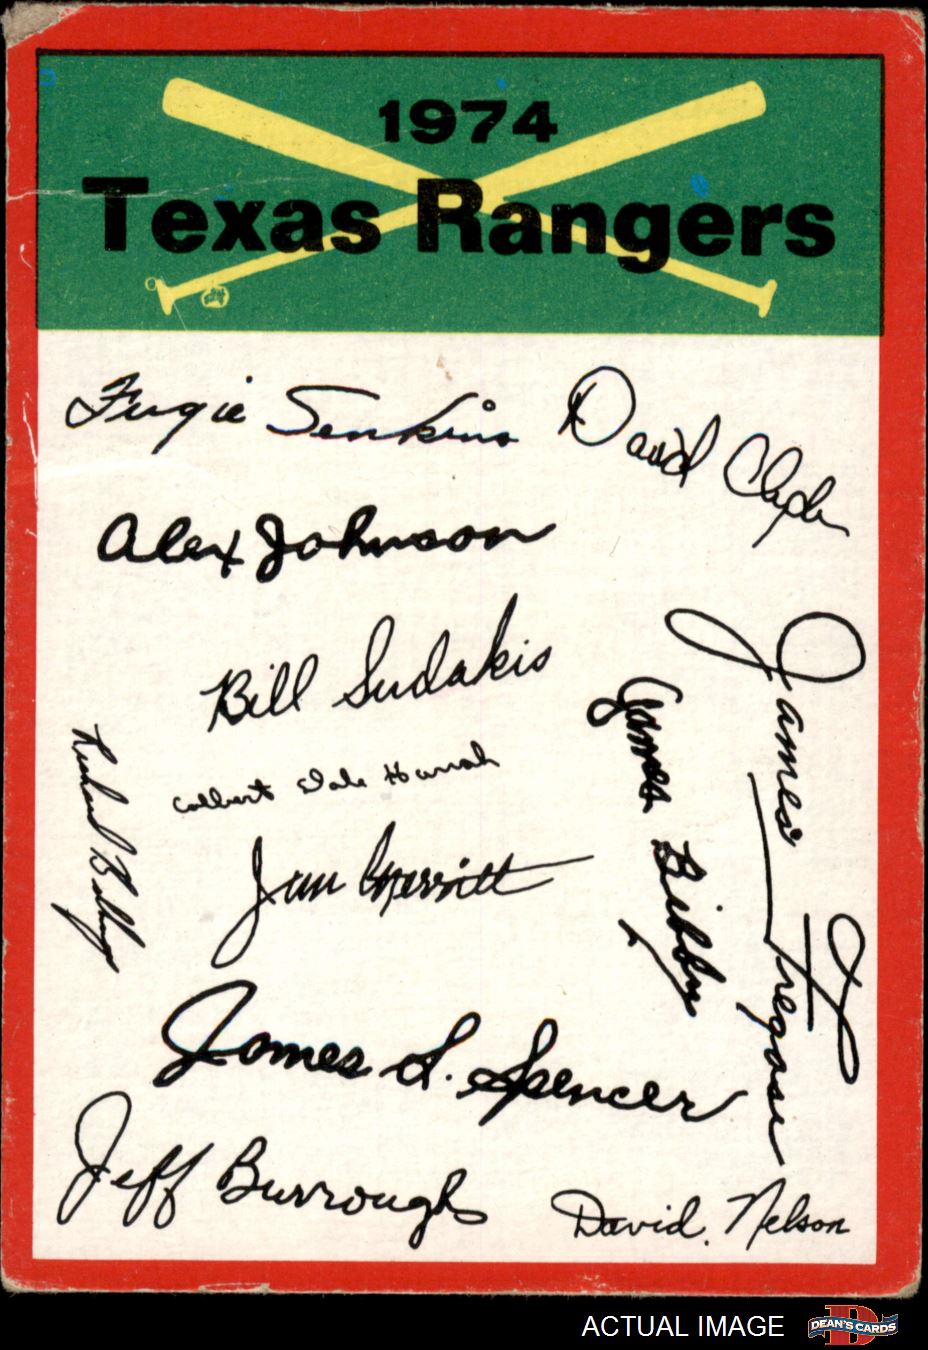 1974
Texas Rangers
Fergie Jenkins
David Clyde
Alex Johnson
Bill Sudakis
James Fregosi
James Bibby
Richard Billings
Colbert Dale Hamrah
Jim Merritt
James L. Spencer
Jeff Burroughs
David. Nelson
ACTUAL IMAGE
DEAN'S CARDS